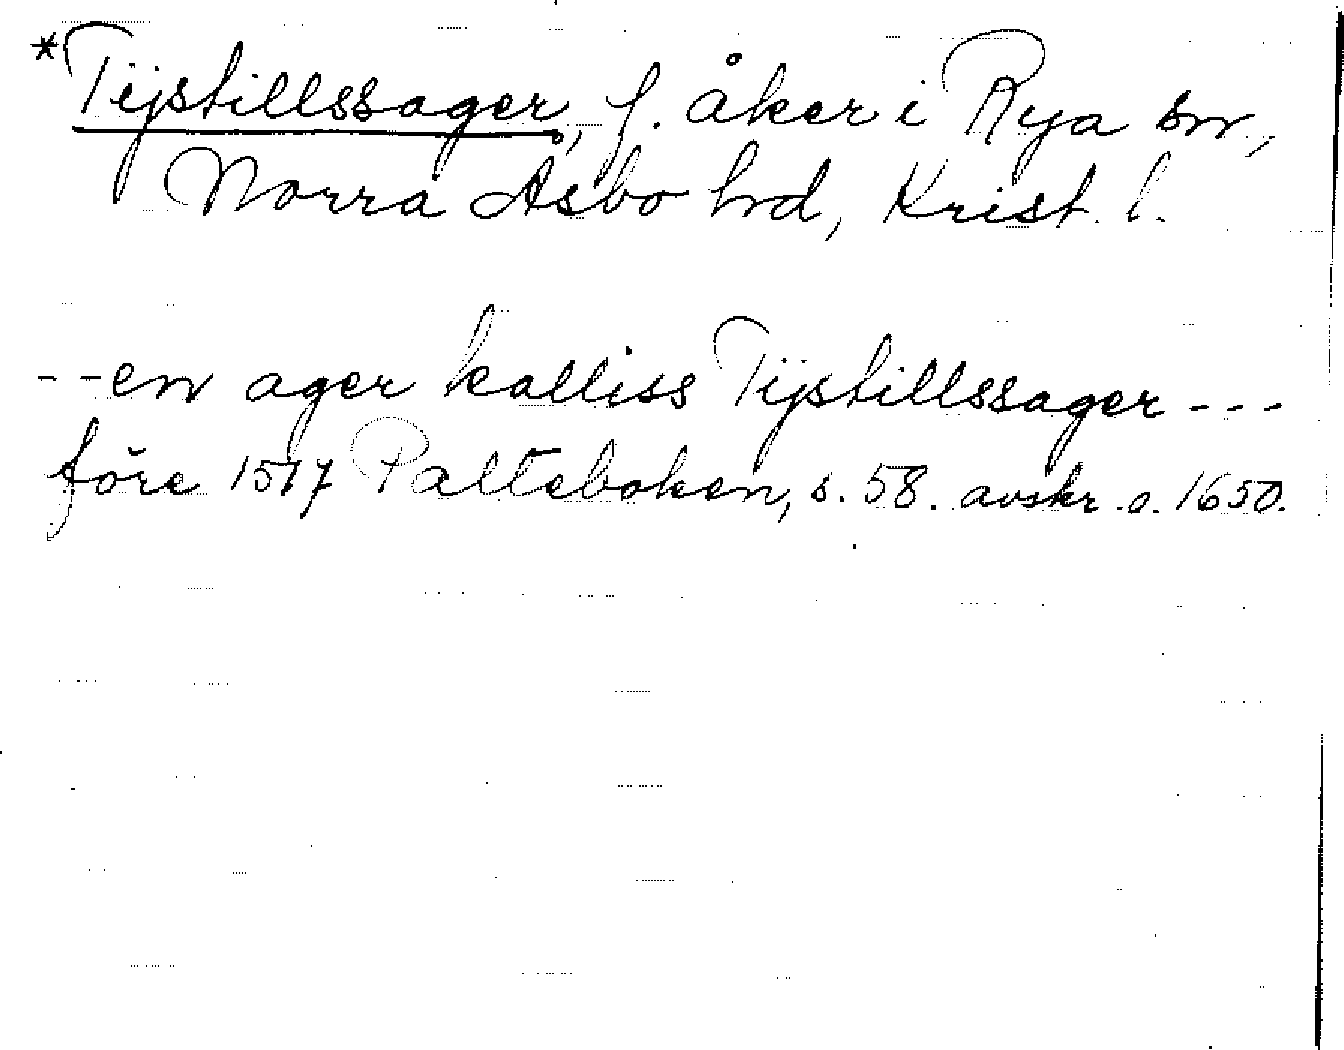 *Tijstillssager, f. åker i Rya sn,
Norra Åsbo hrd, Krist. l.
--en ager kalliss Tijstillssager---
före 1517 Palteboken, s. 58. avskr. o. 1650.